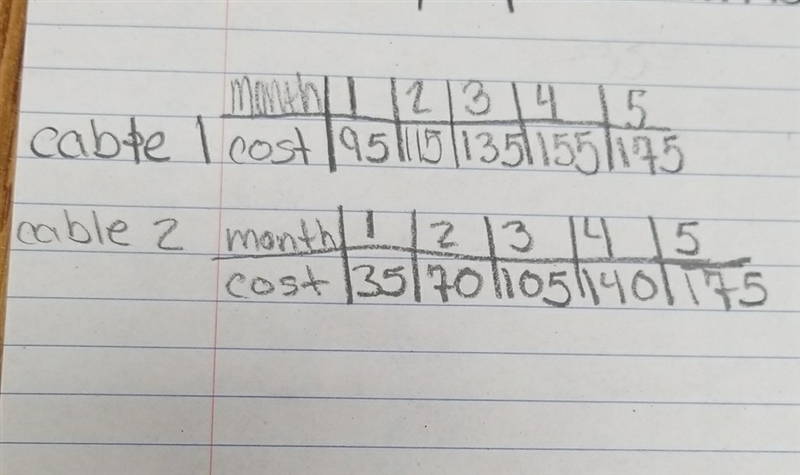 month 1 2 3 4 5
cable 1 cost 95 115 135 155 175
cable 2 month 1 2 3 4 5
cost 35 70 105 140 175